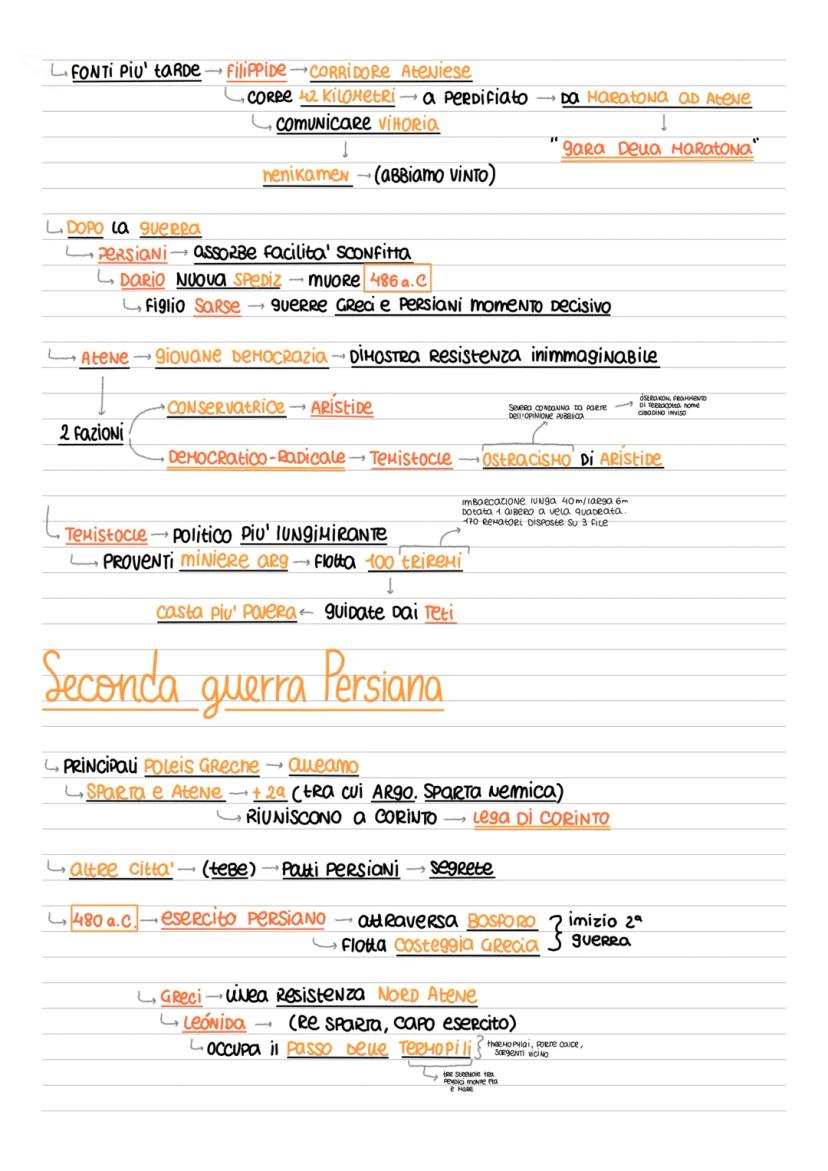 ↳ FONTI PIU' TARDE → FILIPPIDE → CORRIDORE ATENIESE
↳ CORRE 42 KILOMETRI → A PERDIFIATO → DA MARATONA AD ATENE
↳ COMUNICARE VITTORIA
"GARA DELLA MARATONA"
NENIKAMEN → (ABBIAMO VINTO)
↳ DOPO LA GUERRA
↳ PERSIANI → ASSORBE FACILITA' SCONFITTA
↳ DARIO NUOVA SPEDIZ → MUORE 486 a.C
↳ FIGLIO SARSE → GUERRE GRECI E PERSIANI MOMENTO DECISIVO
↳ ATENE → GIOVANE DEMOCRAZIA → DIMOSTRA RESISTENZA INIMMAGINABILE
2 FAZIONI
CONSERVATRICE → ARÍSTIDE
SEVERA CONDANNA DA PARTE
DELL'OPINIONE PUBBLICA
ÓSTRAKON, FRAMMENTO
DI TERRACOTTA NOME
CITTADINO INVISO
DEMOCRATICO-RADICALE → TEMISTOCLE → OSTRACISMO DI ARÍSTIDE
IMBARCAZIONE LUNGA 40m/LARGA 6m
DOTATA 1 ALBERO A VELA QUADRATA.
170 REMATORI DISPOSTE SU 3 FILE
↳ TEMISTOCLE → POLITICO PIU' LUNGIMIRANTE
↳ PROVENTI MINIERE ARG → FLOTTA 100 TRIREMI
CASTA PIU' POVERA ← GUIDATE DAI TETI
Seconda guerra Persiana
↳ PRINCIPALI POLEIS GRECHE → ALLEAMO
↳ SPARTA E ATENE → + 29 (TRA CUI ARGO. SPARTA NEMICA)
↳ RIUNISCONO A CORINTO → LEGA DI CORINTO
↳ ALTRE CITTA' → (TEBE) → PATTI PERSIANI → SEGRETE
↳ 480 a.C. → ESERCITO PERSIANO → ATTRAVERSA BOSFORO } IMIZIO 2ª
↳ FLOTTA COSTEGGIA GRECIA } GUERRA
↳ GRECI → LINEA RESISTENZA NORD ATENE
↳ LEÓNIDA → (RE SPARTA, CAPO ESERCITO)
↳ OCCUPA IL PASSO DELLE TERMOPILI { THERMOPYLAI, PORTE CALDE,
SORGENTI VICINO
PENDICI MONTE
E MARE